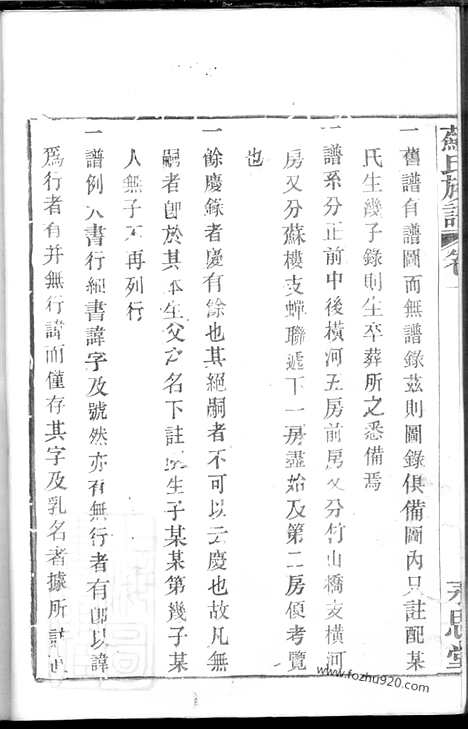 蘇氏族譜 卷一
永思堂
一舊譜有譜圖而無譜錄茲則圖錄俱備圖內只註配某
氏生幾子錄則生卒葬所之悉備焉
一譜系分正前中後橫河五房前房又分竹山橋支橫河
房又分蘇樓支蟬聯遞下一房盡始及第二房便考覽
也
一餘慶錄者慶有餘也其絕嗣者不可以云慶也故凡無
嗣者即於其本生父之名下註明生子某某第幾子某
人無子不再列行
一譜例 書行 書諱字及號然亦有無行者有即以諱
為行者有并無行諱而僅存其字及乳名者據所註
www.fozhu920.com